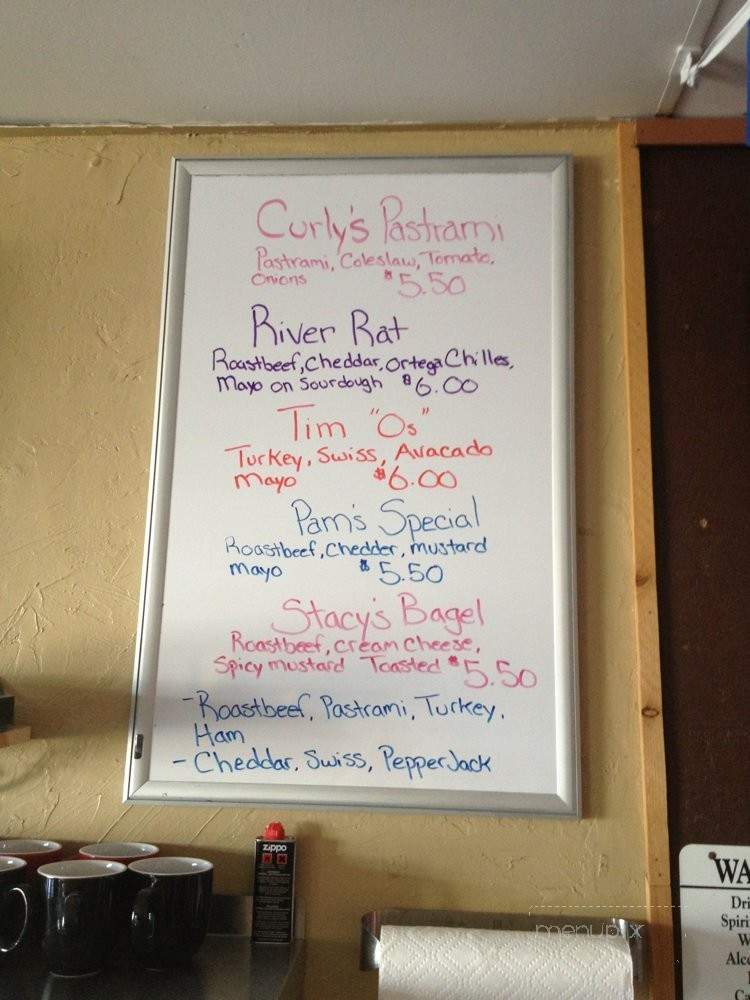 Curly's Pastrami
Pastrami, Coleslaw, Tomato,
Onions $5.50
River Rat
Roastbeef, Cheddar, Ortega Chilles,
Mayo on Sourdough $6.00
Tim "Os"
Turkey, Swiss, Avacado
Mayo $6.00
Pam's Special
Roastbeef, Chedder, mustard
mayo $5.50
Stacy's Bagel
Roastbeef, cream cheese,
Spicy mustard Toasted $5.50
- Roastbeef, Pastrami, Turkey,
Ham
- Cheddar, Swiss, PepperJack
zippo
menupix
WA
Dri
Spiri
W
Alco